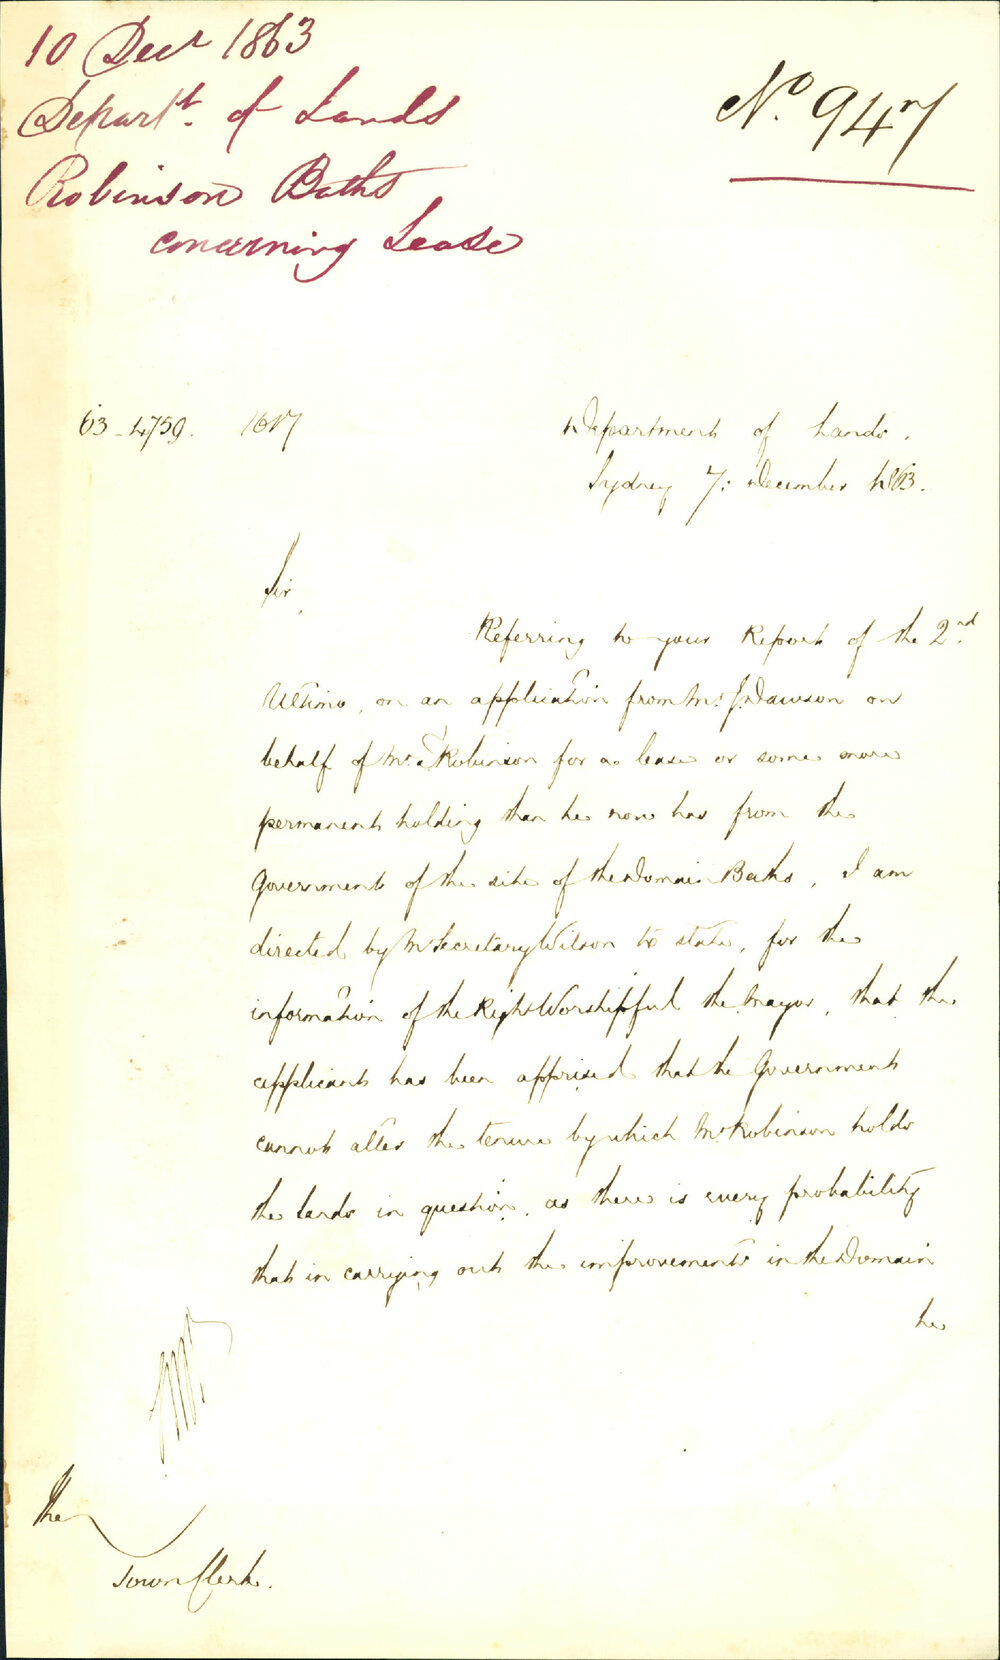 10 Decr 1863
Departt. of Lands
Robinson Baths
concerning Lease
No. 947
63-4759.
Department of Lands.
Sydney 7: December 1863.
Sir,
Referring to your Report of the 2nd.
Ultimo, on an application from Mr. J. Dawson on
behalf of Mr. Robinson for a lease or some more
permanent holding than he now has from the
Government of the site of the Domain Baths, I am
directed by Mr Secretary Wilson to state, for the
information of the Right Worshipful the Mayor, that the
applicant has been apprised that the Government
cannot alter the tenure by which Mr Robinson holds
the lands in question, as there is every probability
that in carrying out the improvements in the Domain
he
The
Town Clerk.